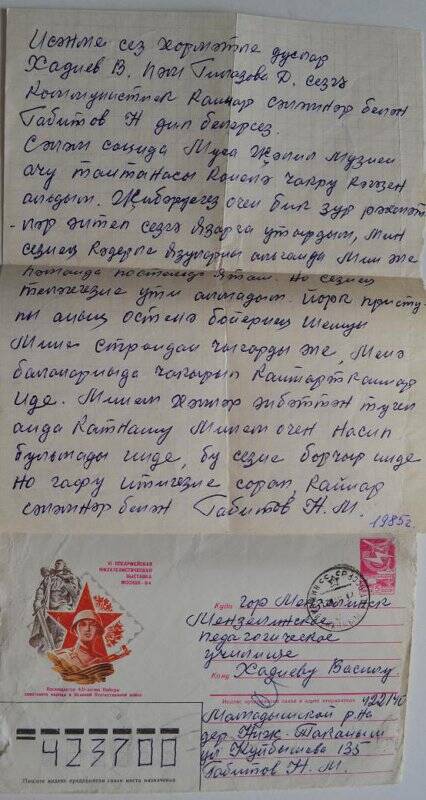 Исәнме сез хөрмәтле дуслар
Хадиев В. һәм Гыйлазова Ф. сезгә
коммунистик кайнар сәламнәр белән
Габитов Н дип белерсез.
Сәлам соңында Муса Җәлил музеен
ачу тантанасы көненә чакру кәгазен
алдым. Җибәрдегез өчен бик зур рәхмәт
-ләр әйтеп сезгә язарга утырдым, мин
сезнең кадерле язуларны алганда мин әле
һаманда постельдә ятам. Но сезнең
теләгегезне үти алмадым. Йөрәк присту-
пы аның өстенә бөернең
мине стройдан чыгарды әле, Менә
балаларымда чакырып кайтарткалар
иде. Минем хәлләр әйбәттән түгел
анда катнашу минем өчен насип
булмады инде, бу сезне борчыр инде
но гафу итүегезне сорап, кайнар
сәламнәр белән Габитов Н. М.
1985г.
VI ВСЕАРМЕЙСКАЯ
ФИЛАТЕЛИСТИЧЕСКАЯ
ВЫСТАВКА
МОСКВА-84
Посвящается 40-летию Победы
советского народа в Великой Отечественной войне
Куда гор Мензелинск
Мензелинское
педагогическое
училище
Кому Хадиеву Василу
Индекс предприятия связи и адрес отправителя
422140
Мамадышский р-на
дер. Ниж-Таканыш
ул Куйбышева 135
Габитов Н. М.
423700
Пишите индекс предприятия связи места назначения